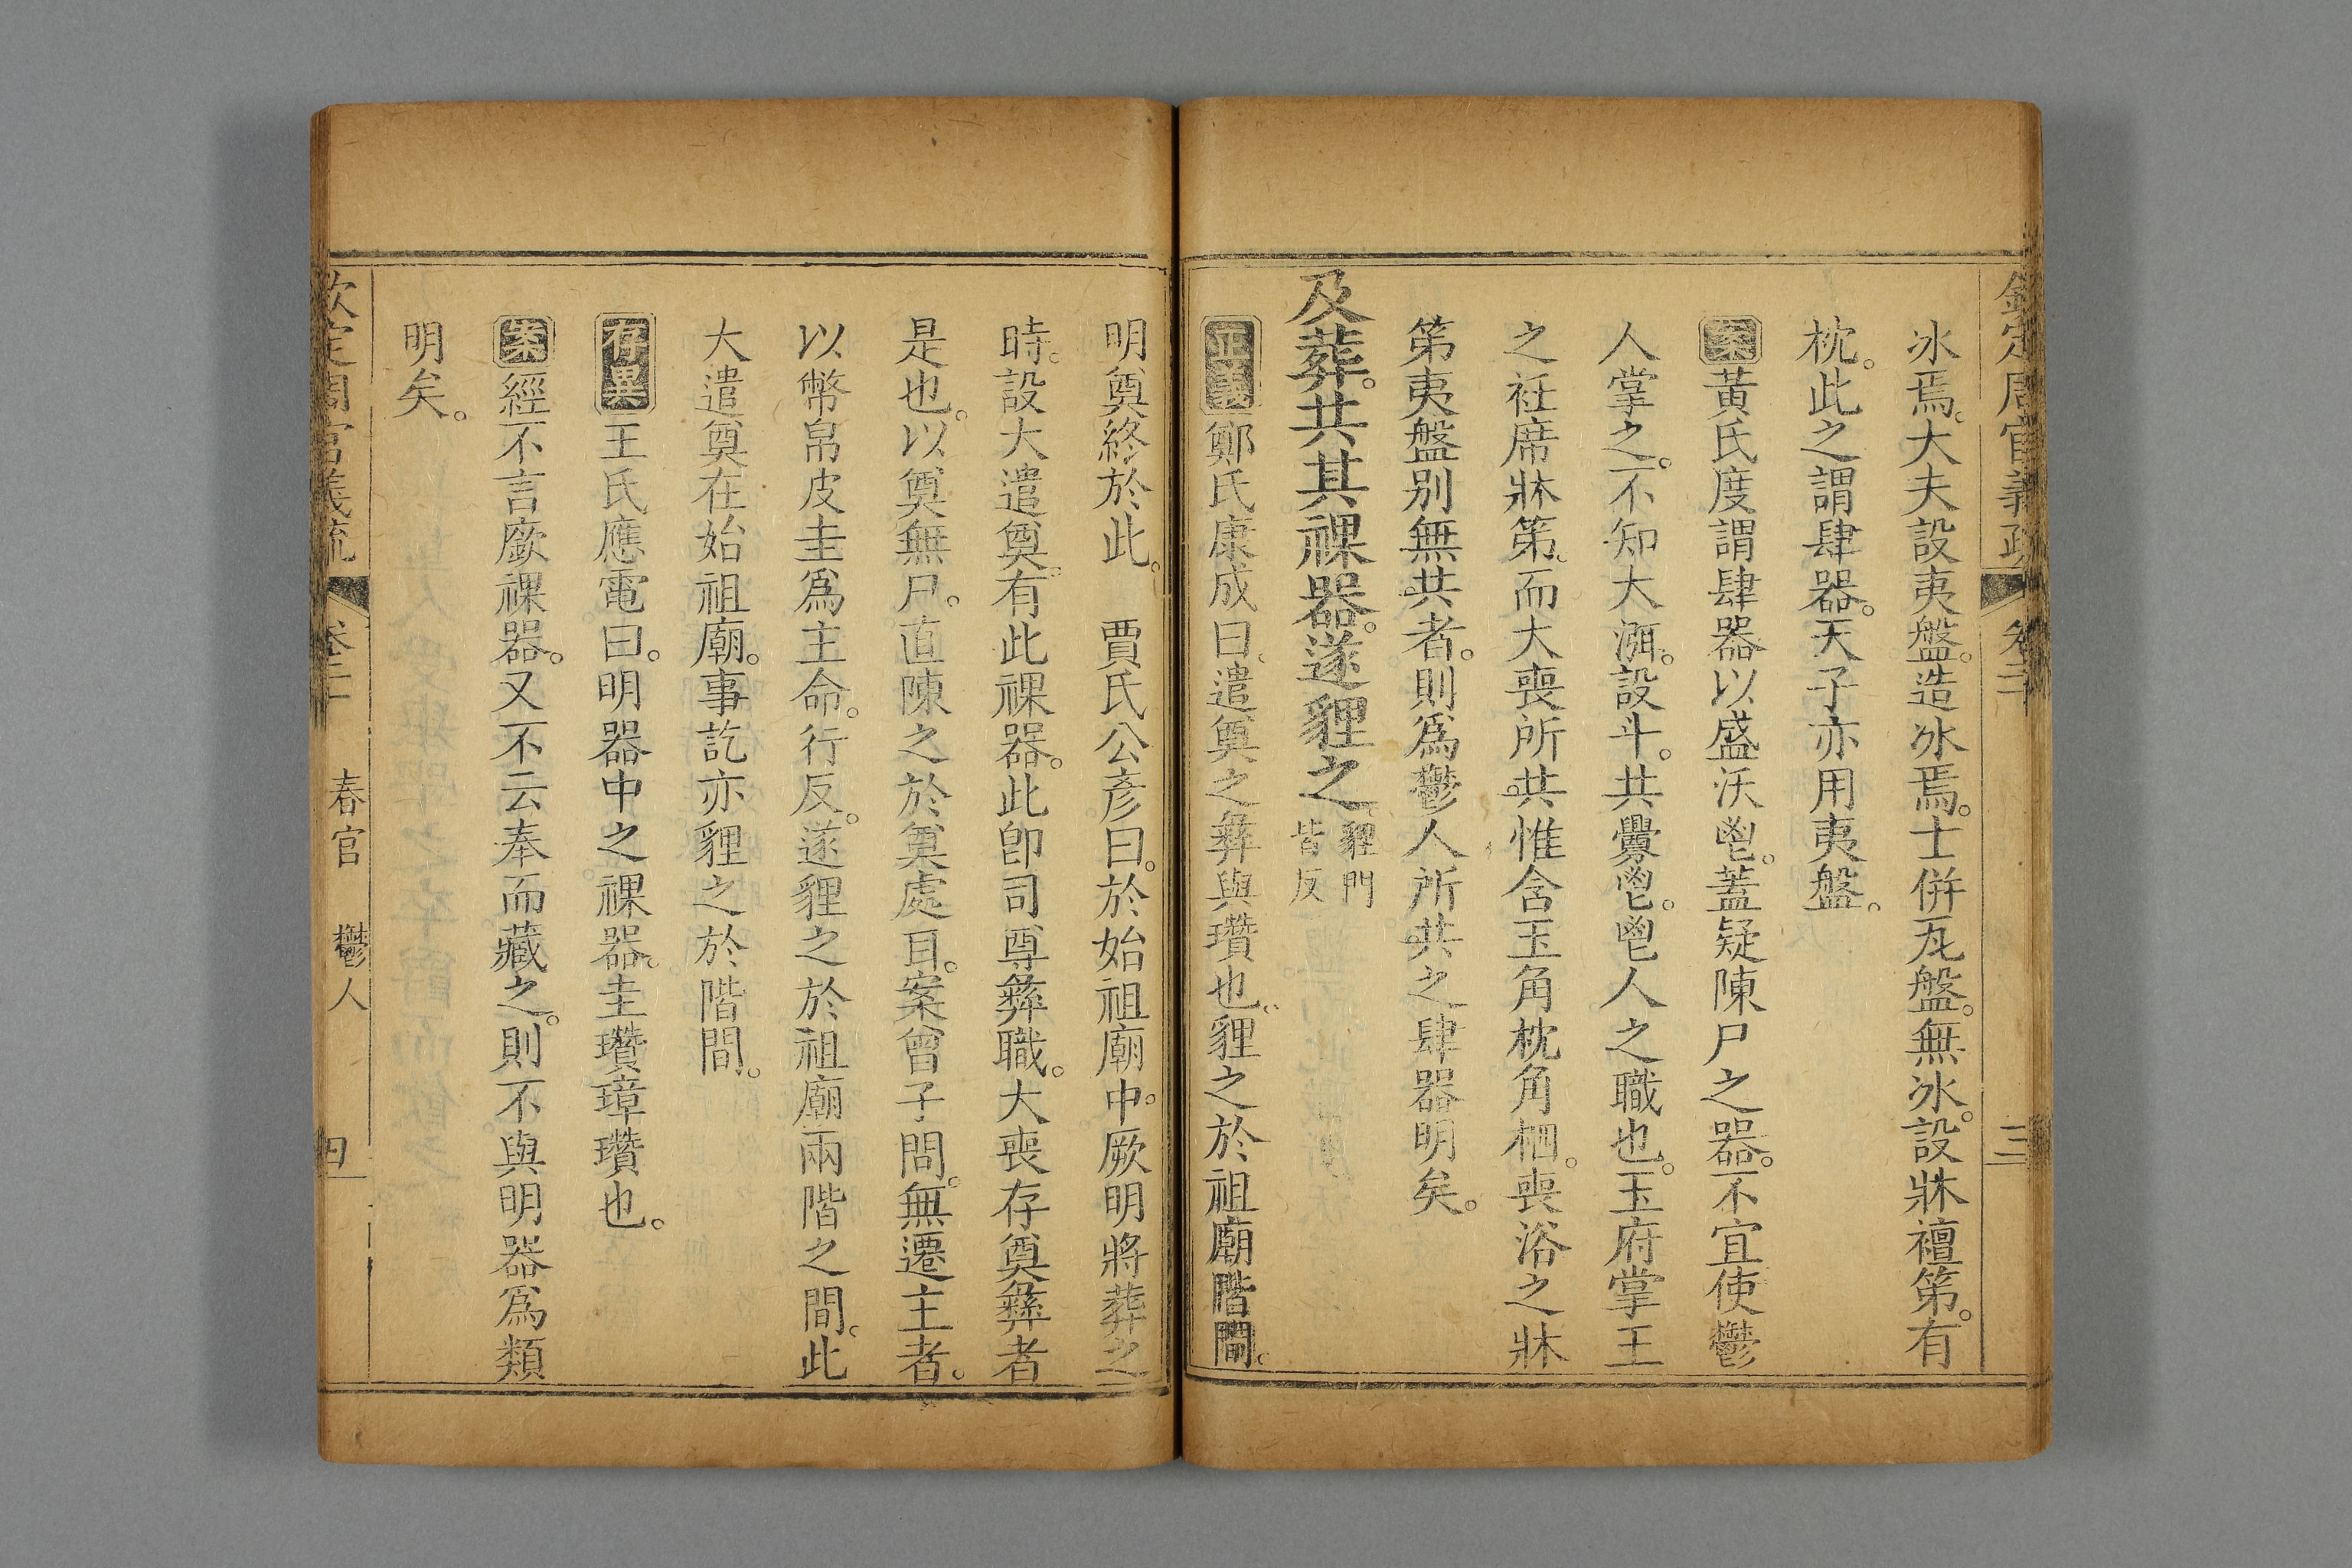 欽定周官義疏 卷二十 三
冰焉。大夫設夷盤。造冰焉。士併瓦盤。無冰。設牀襢第。有
枕。此之謂肆器。天子亦用夷盤。
案黃氏度謂肆器以盛沃鬯。蓋疑陳尸之器。不宜使鬱
人掌之。不知大渳。設斗。共釁鬯。鬯人之職也。玉府掌王
之衽席牀第。而大喪所共惟含玉角枕角柶。喪浴之牀
第夷盤別無共者。則爲鬱人所共之肆器明矣。
及葬。共其祼器。遂貍之 貍門
皆反
正義鄭氏康成曰。遣奠之彝與瓚也。貍之於祖廟階間。
明奠終於此。 賈氏公彥曰。於始祖廟中。厥明將葬之
時。設大遣奠。有此祼器。此卽司尊彝職。大喪存奠彝者
是也。以奠無尸。直陳之於奠處耳。案曾子問。無遷主者。
以幣帛皮圭爲主命。行反。遂貍之於祖廟兩階之間。此
大遣奠在始祖廟。事訖亦貍之於階間。
存異王氏應電曰。明器中之祼器。圭瓚璋瓚也。
案經不言廞祼器。又不云奉而藏之。則不與明器爲類
明矣。
欽定周官義疏 卷二十 春官 鬱人 四